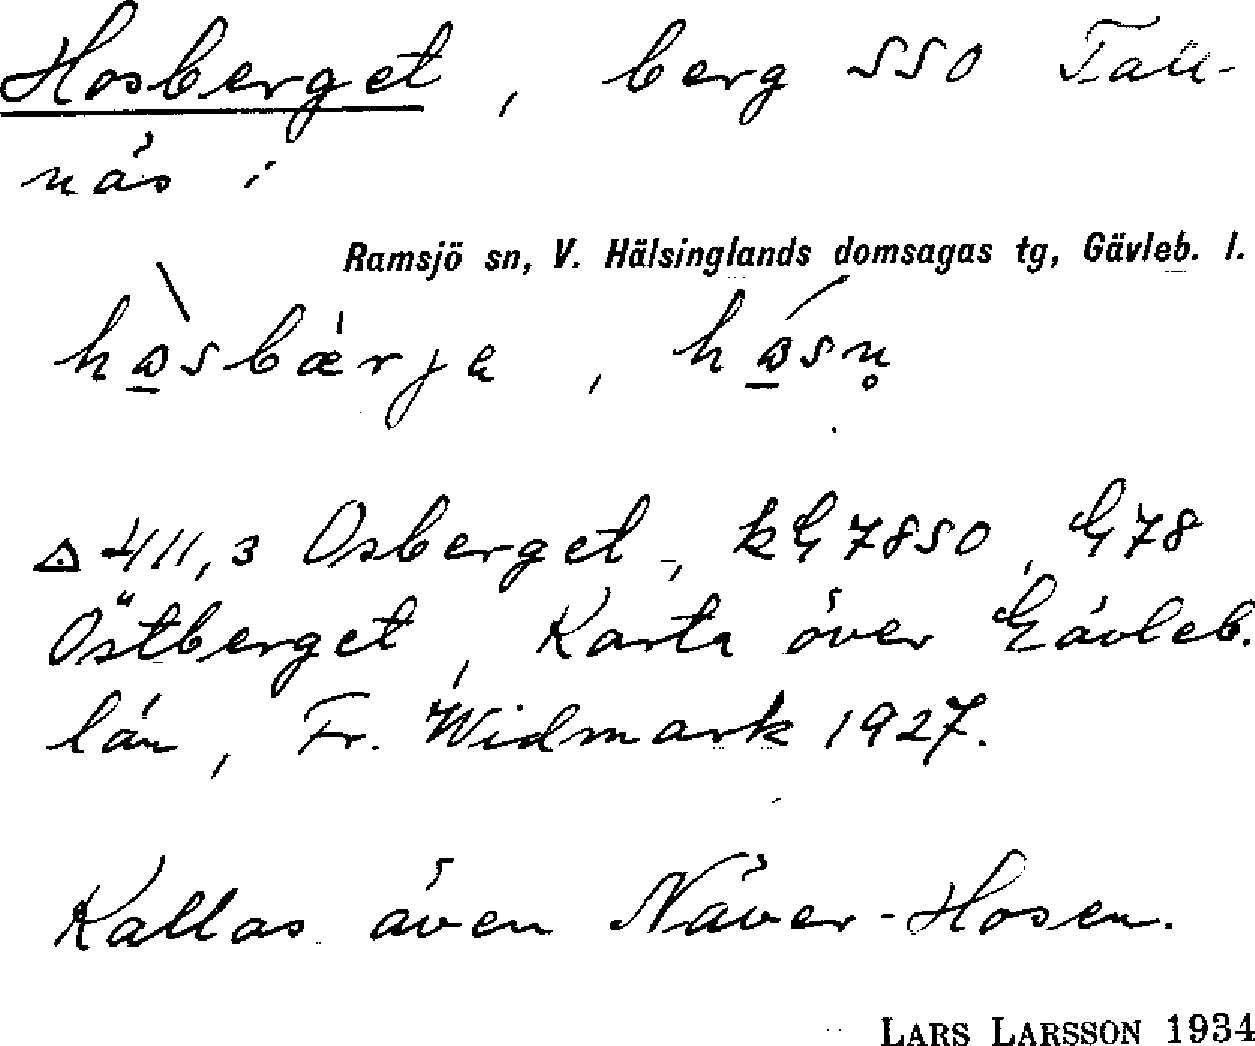 Hosberget, berg SSO Tall-
näs i
Ramsjö sn, V. Hälsinglands domsagas tg, Gävleb. l.
△ 411,3 Osberget, kG 7850, G78
Östberget, Karta över Gävleb.
län, Fr. Widmark 1927.
Kallas även Näver-Hosen.
LARS LARSSON 1934